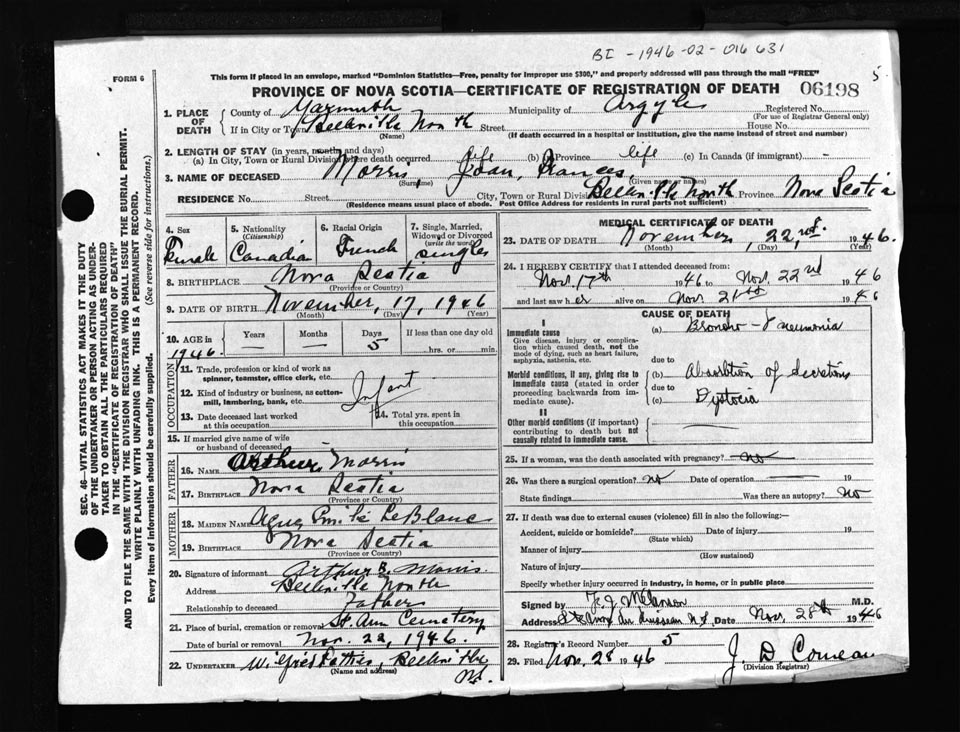 BI - 1946-02-016631
FORM 6
This form if placed in an envelope, marked "Dominion Statistics—Free, penalty for improper use $300," and properly addressed will pass through the mail "FREE"
5
PROVINCE OF NOVA SCOTIA—CERTIFICATE OF REGISTRATION OF DEATH 06198
1. PLACE OF DEATH
County of Yarmouth Municipality of Argyle Registered No.
(For use of Registrar General only)
If in City or Town Belleville North Street House No.
(Name) (If death occurred in a hospital or institution, give the name instead of street and number)
2. LENGTH OF STAY (in years, months and days)
(a) In City, Town or Rural Division where death occurred life (b) Province life (c) In Canada (if immigrant) -
3. NAME OF DECEASED Morris, Joan, Frances,
(Surname) (Given names)
RESIDENCE No. Street City, Town or Rural Div. Belleville North Province Nova Scotia
(Residence means usual place of abode. Post Office Address for residents in rural parts not sufficient)
4. Sex Female
5. Nationality (Citizenship) Canadian
6. Racial Origin French
7. Single, Married, Widowed or Divorced (write the word) Single
8. BIRTHPLACE Nova Scotia
(Province or Country)
9. DATE OF BIRTH November, 17, 1946
(Month) (Day) (Year)
10. AGE in 1946. Years Months Days 5 If less than one day old
hrs. or min.
OCCUPATION
11. Trade, profession or kind of work as spinner, teamster, office clerk, etc.
12. Kind of industry or business, as cotton-mill, lumbering, bank, etc. Infant
13. Date deceased last worked at this occupation
14. Total yrs. spent in this occupation
15. If married give name of wife or husband of deceased
FATHER
16. NAME Arthur, Morris
17. BIRTHPLACE Nova Scotia
(Province or Country)
MOTHER
18. MAIDEN NAME LeBlanc
19. BIRTHPLACE Nova Scotia
(Province or Country)
20. Signature of informant Arthur B. Morris.
Address Belleville North
Relationship to deceased Father
21. Place of burial, cremation or removal St. Ann Cemetery
Date of burial or removal Nov. 22, 1946.
22. UNDERTAKER Wilfred Belleville
(Name and address) N.S.
MEDICAL CERTIFICATE OF DEATH
23. DATE OF DEATH November, 22nd. 1946.
(Month) (Day) (Year)
24. I HEREBY CERTIFY that I attended deceased from:
Nov. 17th 1946 to Nov. 22nd 1946
and last saw her alive on Nov. 21st 1946
CAUSE OF DEATH
I
Immediate cause
Give disease, injury or complication which caused death, not the mode of dying, such as heart failure, asphyxia, asthenia, etc.
(a) Broncho-Pneumonia
due to
Morbid conditions, if any, giving rise to immediate cause (stated in order proceeding backwards from immediate cause).
(b) Absorbtion of Secretions
due to
(c) Dystocia
II
Other morbid conditions (if important) contributing to death but not causally related to immediate cause.
25. If a woman, was the death associated with pregnancy? no
26. Was there a surgical operation? No Date of operation 19
State findings Was there an autopsy? No
27. If death was due to external causes (violence) fill in also the following:—
Accident, suicide or homicide? Date of injury 19
(State which)
Manner of injury
(How sustained)
Nature of injury
Specify whether injury occurred in industry, in home, or in public place
Signed by F. J. Melanson M.D.
Address Ste Anne du Ruisseau N.S. Date Nov. 28th 1946
28. Registrar's Record Number 5
29. Filed Nov. 28 1946 J. D. Comeau
(Division Registrar)
SEC. 46—VITAL STATISTICS ACT MAKES IT THE DUTY
OF THE UNDERTAKER OR PERSON ACTING AS UNDER-
TAKER TO OBTAIN ALL THE PARTICULARS REQUIRED
IN THE "CERTIFICATE OF REGISTRATION OF DEATH"
AND TO FILE THE SAME WITH THE DIVISION REGISTRAR WHO SHALL ISSUE THE BURIAL PERMIT.
WRITE PLAINLY WITH UNFADING INK. THIS IS A PERMANENT RECORD.
Every item of information should be carefully supplied. (See reverse side for instructions.)